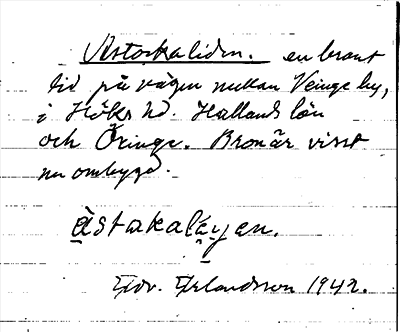 Åstarkaliden. en brant
lid på vägen mellan Veinge by,
i Höks hd. Hallands län
och Öringe. Bron är visst
nu ombygd.
àstakalǻyen.
Edv. Erlandsson 1942.